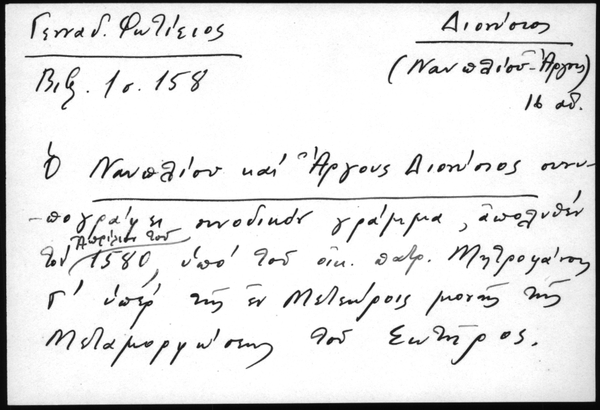 Γενναδ. Φωτίειος
Διονύσιος
(Ναυπλίου-Ἄργους)
Βιβ. 1 σ. 158
16 αἰ.
Ὁ Ναυπλίου καί Ἄργους Διονύσιος συνυ-
-πογράφει συνοδικόν γράμμα, ἀπολυθέν
Ἀπρίλιον τοῦ
τόν 1580, ὑπό τοῦ οἰκ. πατρ. Μητροφάνους
Γ' ὑπέρ τῆς ἐν Μετεώροις μονῆς τῆς
Μεταμορφώσεως τοῦ Σωτῆρος.